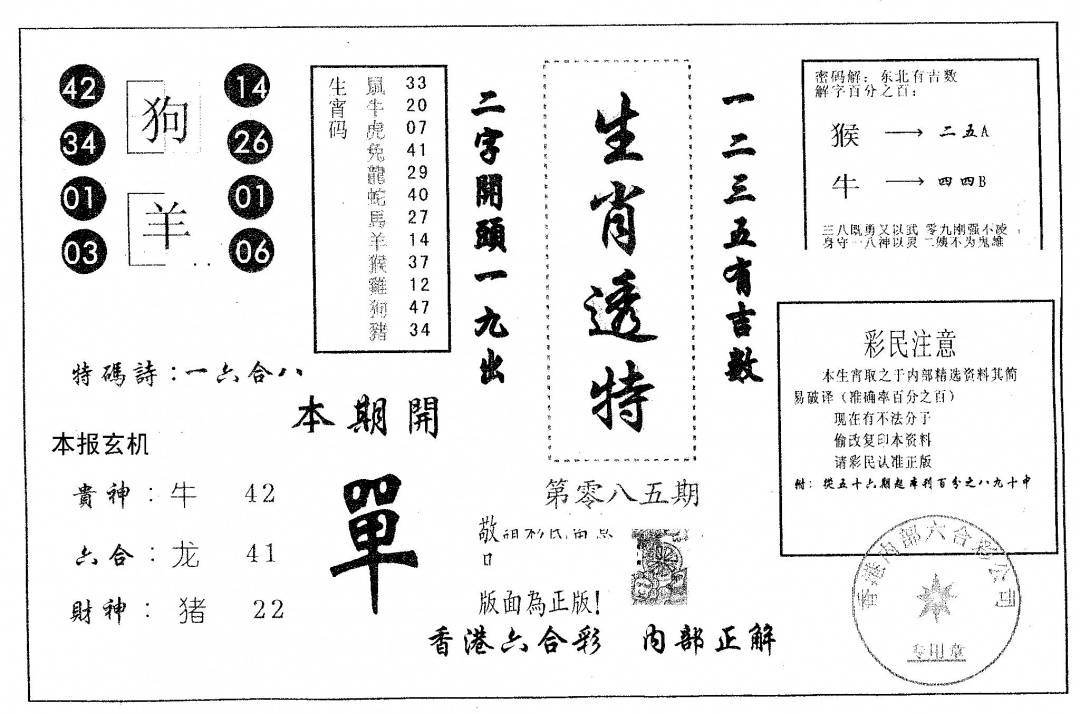 42
34
01
03
狗
羊
14
26
01
06
特碼詩：一六合八
本报玄机
貴神：牛 42
六合：龙 41
財神：猪 22
生宵码
鼠 33
牛 20
虎 07
兔 41
龍 29
蛇 40
馬 27
羊 14
猴 37
雞 12
狗 47
豬 34
本期開
單
二字開頭一九出
生肖透特
一二三五有吉數
第零八五期
敬
版面為正版！
香港六合彩 内部正解
密码解：东北有吉数
解字百分之百：
猴 → 二五A
牛 → 四四B
三八既勇又以武 零九刚强不凌
身守一八神以灵 二姨不为鬼雄
彩民注意
本生宵取之于内部精选资料其简
易破译（准确率百分之百）
现在有不法分子
偷改复印本资料
请彩民认准正版
附：從五十六期起库利百分之八九十中
香港内部六合彩公司
专用章